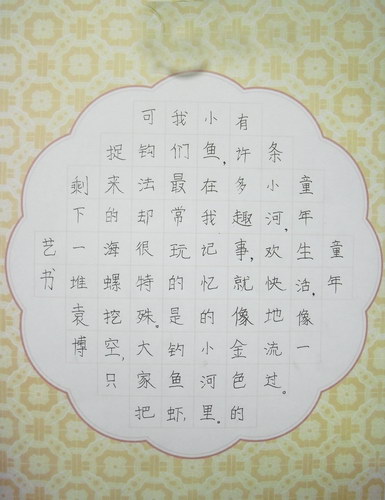 童年
童年生活,像一
条小河,欢快地流过。
有许多趣事,就像金色的
小鱼,在我记忆的小河里。
我们最常玩的是钓鱼虾,
可钓法却很特殊。大家把
捉来的海螺挖空,只
剩下一堆袁博
艺书